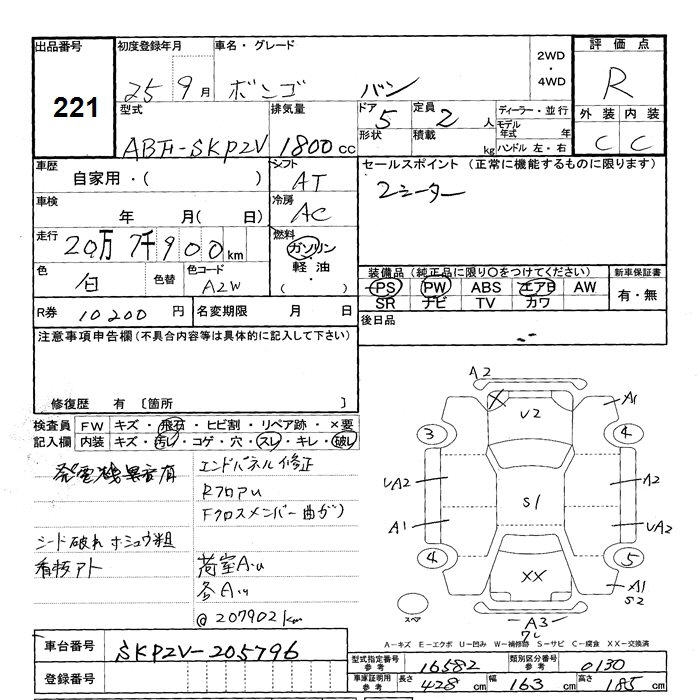 出品番号 初度登録年月 車名・グレード 2WD・4WD 評価点
221 25 9月 ボンゴ バン R
型式 排気量 ドア 5 定員 2人 ディーラー・並行 外装 内装
ABF-SKP2V 1800cc 形状 積載 kg モデル年式 年 ハンドル 左・右 C C
車歴 シフト セールスポイント (正常に機能するものに限ります)
自家用・( ) AT 2シーター
車検 冷房
年 月( 日) AC
走行 燃料
20万7千900km ガソリン・軽油・( )
色 色替 色コード 装備品(純正品に限り○をつけてください) 新車保証書
白 A2W PS PW ABS エアB AW 有・無
SR ナビ TV カワ
R券 10200円 名変期限 月 日 後日品
注意事項申告欄(不具合内容等は具体的に記入して下さい)
修復歴 有 〔箇所 〕
検査員記入欄 FW キズ・飛石・ヒビ割・リペア跡・×要
内装 キズ・汚レ・コゲ・穴・スレ・キレ・破レ
発電機異音有
エンドパネル修正
RフロアU
Fクロスメンバー曲ガリ
シート破れ ホシュウ粗
看板アト
荷室A・U
各A・U
@207902km
A2
X U2 A1
3 4
UA2 A2
S1
A1 UA2
4 5
XX A1
S2
スペア A3
A-キズ E-エクボ U-凹み W-補修跡 S-サビ C-腐食 XX-交換済
車台番号 SKP2V-205796
登録番号
型式指定番号 参考 16582 類別区分番号 参考 0130
車庫証明用 参考 長さ 428cm 幅 163cm 高さ 185cm